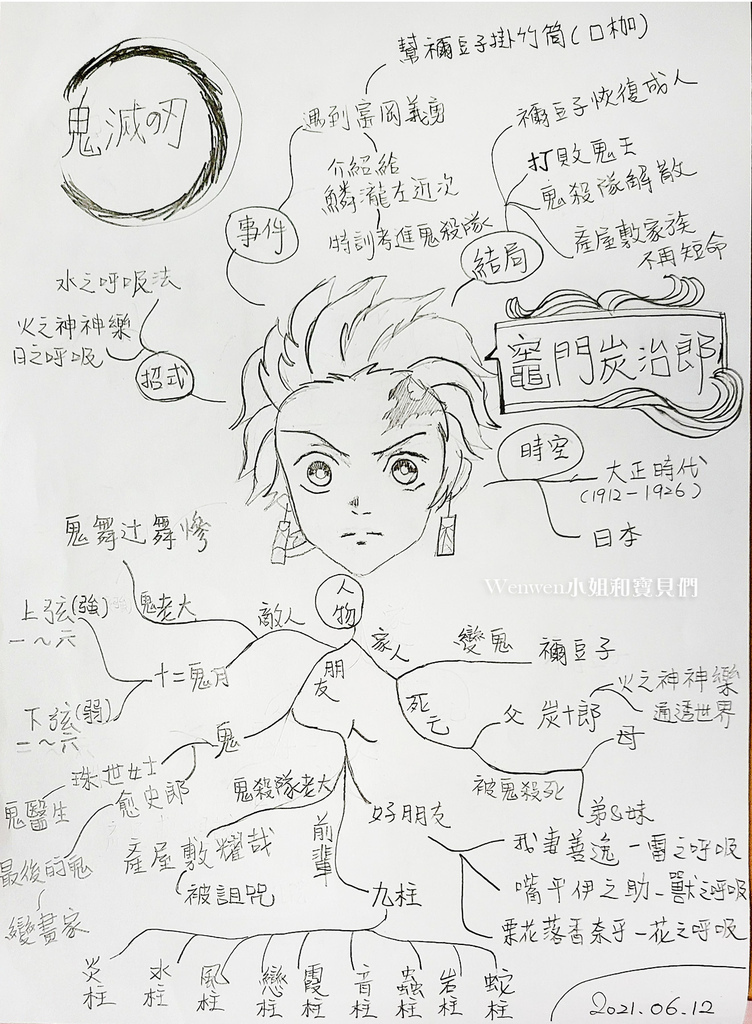 鬼滅の刃
幫禰豆子掛竹筒(口枷)
遇到富岡義勇
介紹給
鱗瀧左近次
特訓考進鬼殺隊
事件
禰豆子恢復成人
打敗鬼王
鬼殺隊解散
產屋敷家族
不再短命
結局
水之呼吸法
火之神神樂
日之呼吸
招式
竈門炭治郎
時空
大正時代
(1912-1926)
日本
Wenwen小姐和寶貝們
人物
敵人
鬼老大
鬼舞辻舞慘
十二鬼月
上弦(強)
一～六
下弦(弱)
一～六
家人
變鬼
禰豆子
死亡
父 炭十郎
火之神神樂
通透世界
被鬼殺死
母
弟&妹
朋友
鬼
珠世女士
鬼醫生
愈史郎
最後的鬼
變畫家
鬼殺隊老大
產屋敷耀哉
被詛咒
前輩
九柱
炎柱
水柱
風柱
戀柱
霞柱
音柱
蟲柱
岩柱
蛇柱
好朋友
我妻善逸-雷之呼吸
嘴平伊之助-獸之呼吸
栗花落香奈乎-花之呼吸
2021.06.12